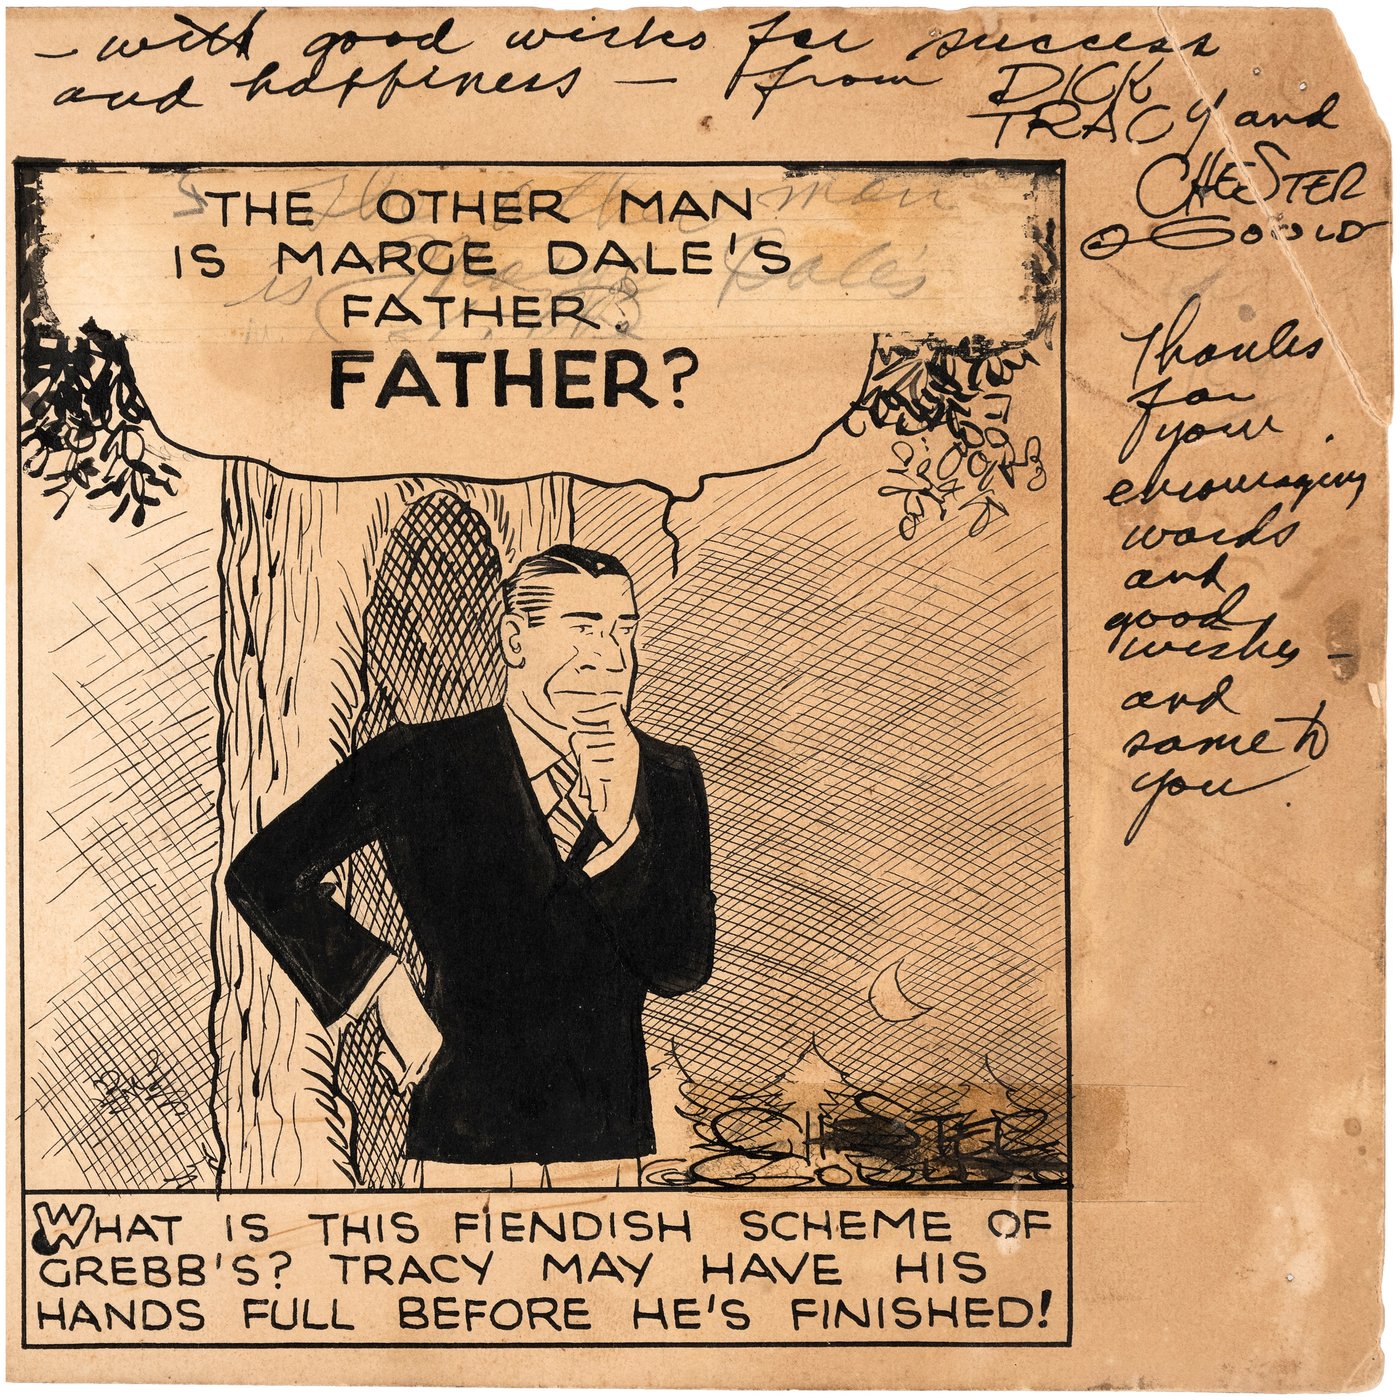 - with good wishes for success
and happiness - from DICK
TRACY and
CHESTER
GOULD
THE OTHER MAN
IS MARGE DALE'S
FATHER.
FATHER?
Thanks
for
your
encouraging
words
and
good
wishes -
and
same to
you.
CHESTER
GOULD
WHAT IS THIS FIENDISH SCHEME OF
GREBB'S? TRACY MAY HAVE HIS
HANDS FULL BEFORE HE'S FINISHED!